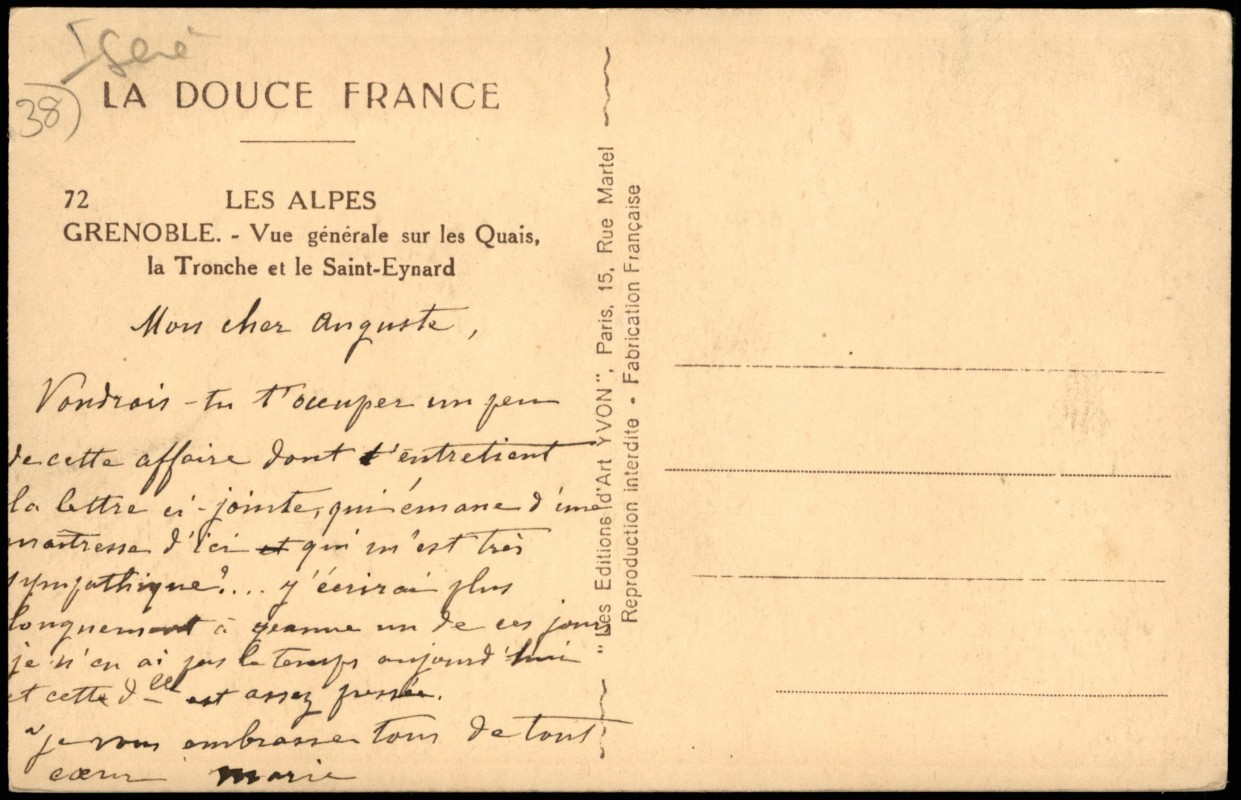 Isère
38)
LA DOUCE FRANCE
72 LES ALPES
GRENOBLE. - Vue générale sur les Quais,
la Tronche et le Saint-Eynard
Mon cher Auguste,
Voudrais-tu t'occuper un peu
de cette affaire dont t'entretient
la lettre ci-jointe, qui émane d'une
maîtresse d'ici et qui m'est très
sympathique?... j'écrirai plus
longuement à Jeanne un de ces jours
je n'en ai pas le temps aujourd'hui
et cette d^lle est assez pressée.
je vous embrasse tous de tout
cœur Marie
"Les Editions d'Art YVON", Paris, 15, Rue Martel
Reproduction interdite - Fabrication Française